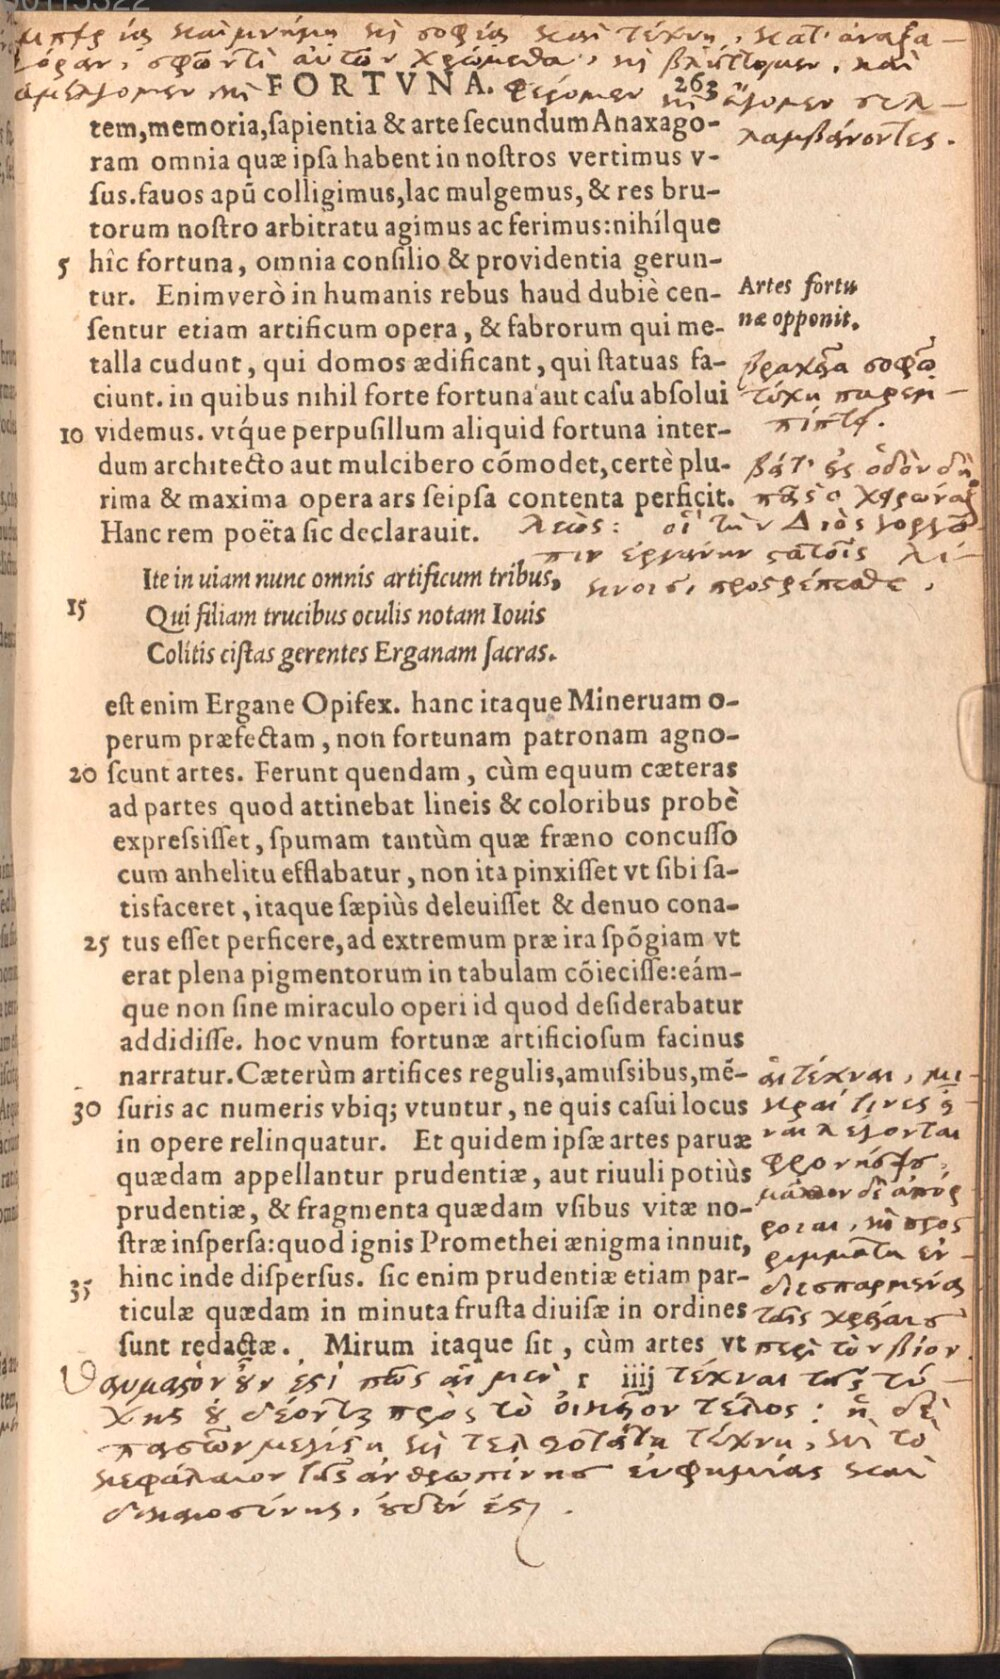 μπειρίᾳ καὶ μνήμῃ καὶ σοφίᾳ καὶ τέχνῃ, κατ' ἀναξα-
γόραν, σφῶν τὲ αὐτῶν χρώμεθα, καὶ βλίττομεν, καὶ
ἀμέλγομεν καὶ
FORTVNA.
φέρομεν καὶ ἄγομεν συλ-
263
λαμβάνοντες.
tem, memoria, ſapientia & arte ſecundum Anaxago-
ram omnia quæ ipſa habent in noſtros vertimus v-
ſus. fauos apũ colligimus, lac mulgemus, & res bru-
torum noſtro arbitratu agimus ac ferimus: nihílque
5 hîc fortuna, omnia conſilio & providentia gerun-
tur. Enimverò in humanis rebus haud dubiè cen-
Artes fortu
næ opponit.
ſentur etiam artificum opera, & fabrorum qui me-
talla cudunt, qui domos ædificant, qui ſtatuas fa-
ciunt. in quibus nihil forte fortuna aut caſu abſolui
βραχεῖα σοφῷ
τύχη παρεμ-
πίπτει.
10 videmus. vtq́ue perpuſillum aliquid fortuna inter-
dum architecto aut mulcibero cõmodet, certè plu-
rima & maxima opera ars ſeipſa contenta perficit.
Hanc rem poëta ſic declarauit.
βάτ' εἰς ὁδὸν δὴ
πᾶς ὁ χειρώναξ
λεώς: οἳ τὴν Διὸς γοργῶ-
πιν ἐργάνην στατοῖς λί-
κνοις, προστρέπεσθε.
Ite in uiam nunc omnis artificum tribus,
15 Qui filiam trucibus oculis notam Iouis
Colitis ciſtas gerentes Erganam ſacras.
eſt enim Ergane Opifex. hanc itaque Mineruam o-
perum præfectam, non fortunam patronam agno-
20 ſcunt artes. Ferunt quendam, cùm equum cæteras
ad partes quod attinebat lineis & coloribus probè
expreſsiſſet, ſpumam tantùm quæ fræno concuſſo
cum anhelitu efflabatur, non ita pinxiſſet vt ſibi ſa-
tisfaceret, itaque ſæpiùs deleuiſſet & denuo cona-
25 tus eſſet perficere, ad extremum præ ira ſpõgiam vt
erat plena pigmentorum in tabulam cõieciſſe: eám-
que non ſine miraculo operi id quod deſiderabatur
addidiſſe. hoc vnum fortunæ artificioſum facinus
narratur. Cæterùm artifices regulis, amuſsibus, mẽ-
30 ſuris ac numeris vbiq; vtuntur, ne quis caſui locus
in opere relinquatur. Et quidem ipſæ artes paruæ
quædam appellantur prudentiæ, aut riuuli potiùs
prudentiæ, & fragmenta quædam vſibus vitæ no-
ſtræ inſperſa: quod ignis Promethei ænigma innuit,
35 hinc inde diſperſus. ſic enim prudentiæ etiam par-
ticulæ quædam in minuta fruſta diuiſæ in ordines
ſunt redactæ. Mirum itaque ſit, cùm artes vt
αἱ τέχναι, μι-
κραί τινες εἶ-
ναι λέγονται
φρονήσεις,
μᾶλλον δὲ ἀπόρ-
ροιαι, καὶ προς
ριμματα ἐν-
διεσπαρμένα
ταῖς χρείαις
περὶ τὸν βίον.
r iiij
θαυμαστὸν οὖν ἐστὶ πῶς αἱ μὲν τέχναι τῆς τύ-
χης οὐ δέονται πρὸς τὸ οἰκεῖον τέλος: ἡ δὲ
πασῶν μεγίστη καὶ τελειοτάτη τέχνη, καὶ τὸ
κεφάλαιον τῆς ἀνθρωπίνης εὐφημίας καὶ
δικαιοσύνης, οὐδέν ἐστι.